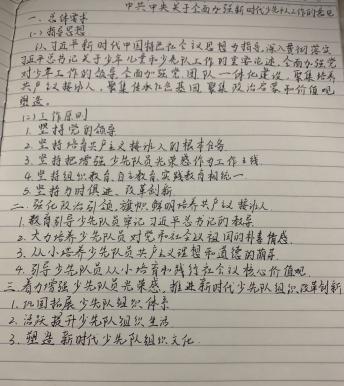 中共中央关于全面加强新时代少先队工作的意见
一、总体要求
(一)指导思想
以习近平新时代中国特色社会主义思想为指导,深入贯彻落实
习近平总书记关于少年儿童和少先队工作的重要论述,全面加强党
对少年工作的领导,全面加强党、团、队一体化建设,聚焦培养
共产主义接班人,聚焦传承红色基因,聚焦政治启蒙和价值观
塑造。
(二)工作原则
1. 坚持党的领导
2. 坚持培育共产主义接班人的根本任务
3. 坚持把增强少先队员光荣感作为工作主线
4. 坚持组织教育、自主教育、实践教育相统一
5. 坚持与时俱进、改革创新
二、强化政治引领,旗帜鲜明培养共产主义接班人
1. 教育引导少先队员牢记习近平总书记的教导.
2. 大力培养少先队员对党和社会主义祖国的朴素情感.
3. 从小培养少先队员共产主义理想和道德的萌芽.
4. 引导少先队员从小培育和践行社会主义核心价值观.
三、着力增强少先队员光荣感,推进新时代少先队组织改革创新
1. 巩固拓展少先队组织体系
2. 活跃提升少先队组织生活
3. 塑造新时代少先队组织文化